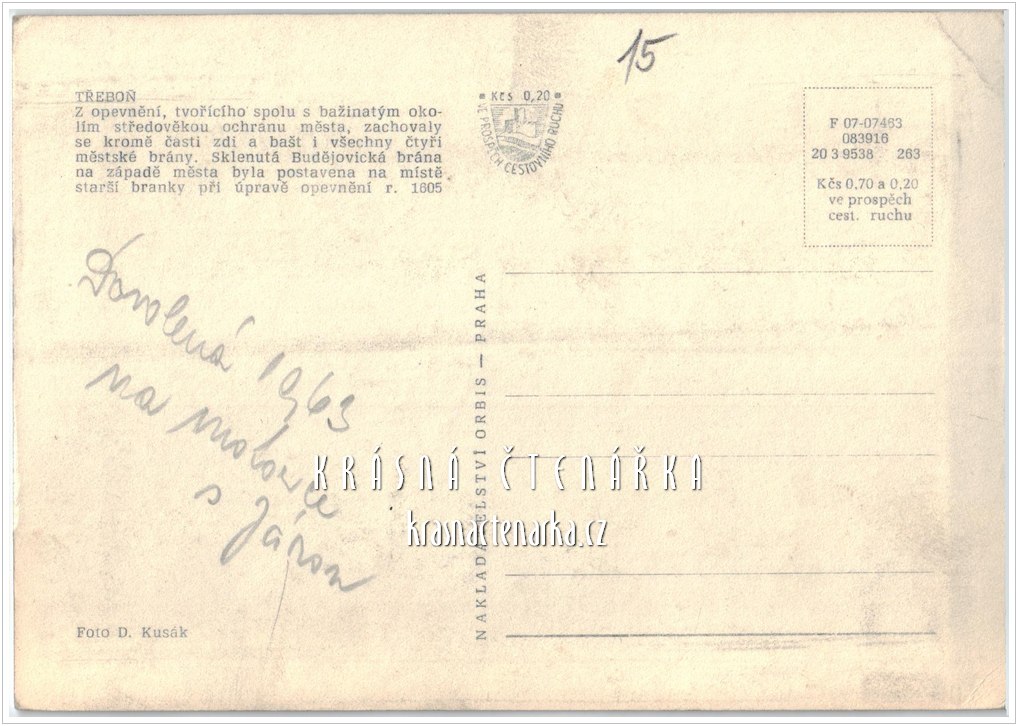 15
TŘEBOŇ
Z opevnění, tvořícího spolu s bažinatým oko-
lím středověkou ochranu města, zachovaly
se kromě části zdí a bašt i všechny čtyři
městské brány. Sklenutá Budějovická brána
na západě města byla postavena na místě
starší branky při úpravě opevnění r. 1605
Kčs 0,20
VE PROSPĚCH CESTOVNÍHO RUCHU
F 07-07463
083916
20 3 9538 263
Kčs 0,70 a 0,20
ve prospěch
cest. ruchu
Dovolená 1963
na motorce
s Járou
NAKLADATELSTVÍ ORBIS — PRAHA
KRÁSNÁ ČTENÁŘKA
krasnactenarka.cz
Foto D. Kusák